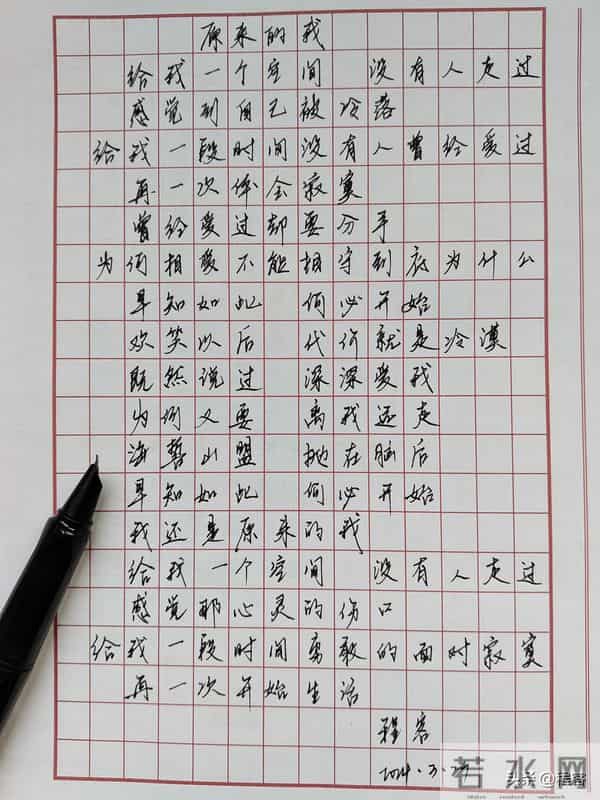 原来的我
给我一个空间 没有人走过
感觉到自己被冷落
给我一段时间没有人曾给爱过
再一次体会寂寞
曾给爱过却要分手
为何相爱不能相守到底为什么
早知如此 何必开始
欢笑以后 代价就是冷漠
既然说过 深深爱我
为何又要 离我远走
海誓山盟 抛在脑后
早知如此 何必开始
我还是原来的我
给我一个空间 没有人走过
感觉那心灵的伤口
给我一段时间勇敢的面对寂寞
再一次开始生活
程客
2024.3.29
若水网
头条@程客